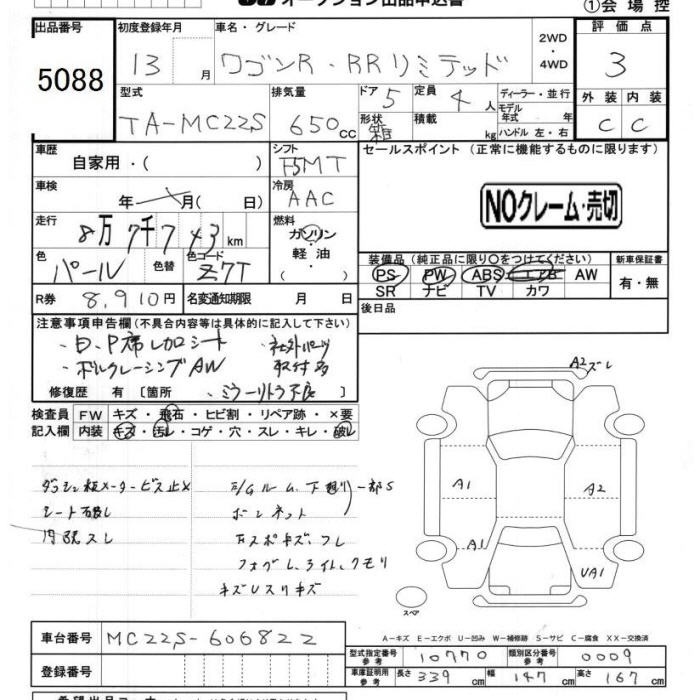 オークション出品申込書
①会場控
出品番号 初度登録年月 車名・グレード 2WD・4WD 評価点
5088 13 月 ワゴンR・RRリミテッド 3
型式 排気量 ドア 定員 ディーラー・並行 外装 内装
TA-MC22S 650cc 5 4人 モデル年式 年 C C
形状 箱 積載 kg ハンドル 左・右
車歴 シフト セールスポイント(正常に機能するものに限ります)
自家用・( ) F5MT
車検 冷房
年 月( 日) AAC
NOクレーム・売切
走行 燃料
8万7千743km ガソリン・軽油・( )
色 色替 色コード 装備品(純正品に限り○をつけてください) 新車保証書
パール Z7T PS PW ABS エアB AW 有・無
SR ナビ TV カワ
R券 8,910円 名変通知期限 月 日 後日品
注意事項申告欄(不具合内容等は具体的に記入して下さい)
・D、P席レカロシート ・社外パーツ
・ボルクレーシングAW 取付多
修復歴 有 〔箇所 ・ミラーリトラ不良 〕
検査員 FW キズ・飛石・ヒビ割・リペア跡・×要
記入欄 内装 キズ・汚レ・コゲ・穴・スレ・キレ・破レ
A2ズレ
ダッシュ板メータービス止メ
シート破レ
内張スレ
E/Gルーム、下廻リ一部S
ボンネット
フォグL、ライト、クモリ
A1
A2
A1
UA1
スペア
A−キズ E−エクボ U−凹み W−補修跡 S−サビ C−腐食 XX−交換済
車台番号 MC22S-606822
型式指定番号 参考 10770 類別区分番号 参考 0009
登録番号
車庫証明用 参考 長さ 339cm 幅 147cm 高さ 167cm